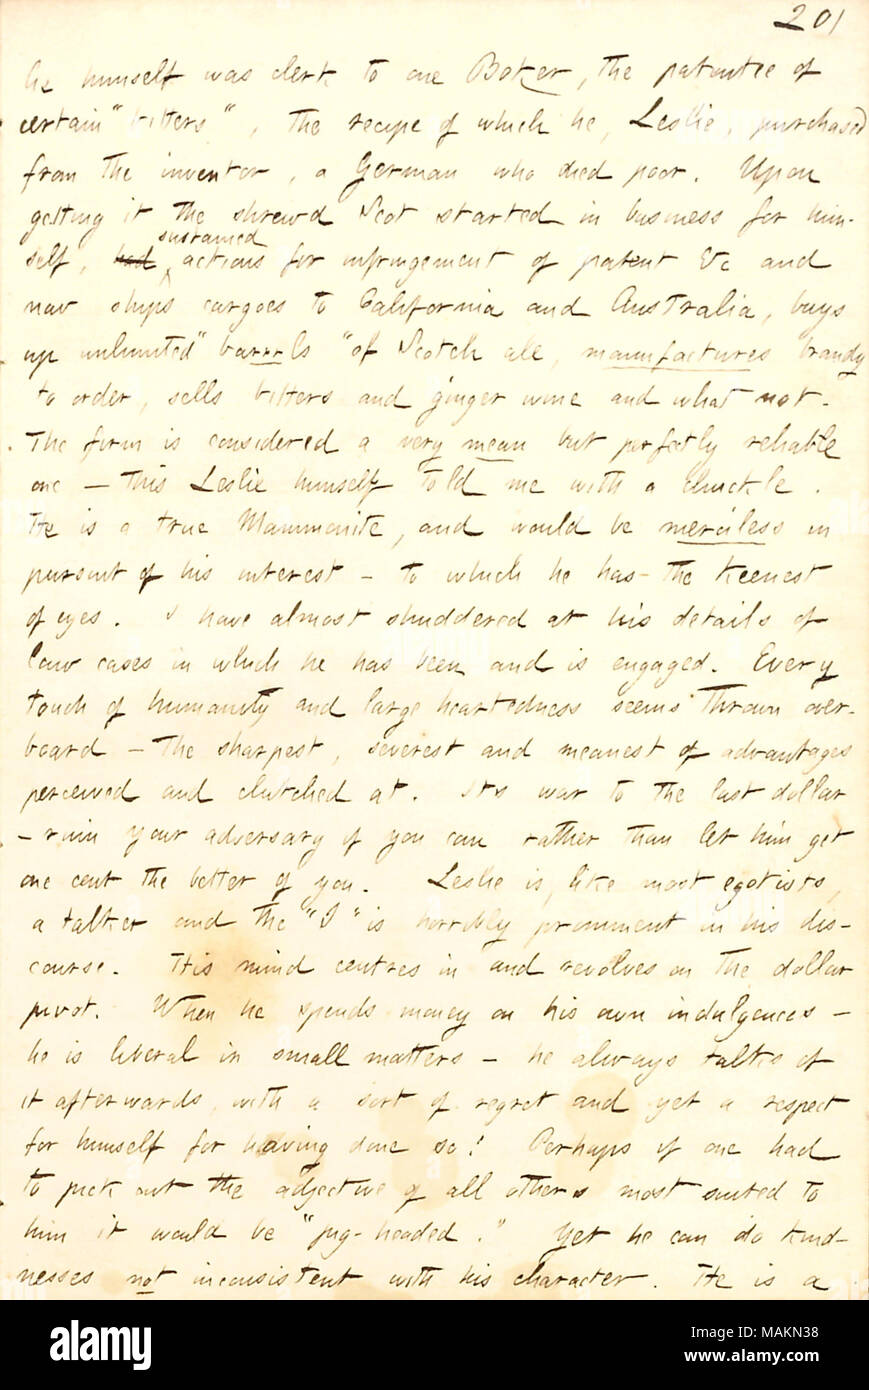 201
he himself was clerk to one Boker, the patentee of
certain "bitters", the recipe of which he, Leslie, purchased
from the inventor, a German who died poor. Upon
getting it the shrewd Scot started in business for him-
sustained
self, had actions for infringement of patent &c and
now ships cargoes to California and Australia, buys
up unlimited "barrrls" of Scotch ale, manufactures brandy
to order, sells bitters and ginger wine and what not.
The firm is considered a very mean but perfectly reliable
one — this Leslie himself told me with a chuckle.
He is a true Mammonite, and would be merciless in
pursuit of his interest — to which he has the keenest
of eyes. I have almost shuddered at his details of
law cases in which he has been and is engaged. Every
touch of humanity and large heartedness seems thrown over-
board — the sharpest, severest and meanest of advantages
perceived and clutched at. It's war to the last dollar
— ruin your adversary if you can rather than let him get
one cent the better of you. Leslie is, like most egotists,
a talker and the "I" is horribly prominent in his dis-
course. His mind centres in and revolves on the dollar
pivot. When he spends money on his own indulgences —
he is liberal in small matters — he always talks of
it afterwards, with a sort of regret and yet a respect
for himself for having done so! Perhaps if one had
to pick out the adjective of all others most suited to
him it would be "pig-headed." Yet he can do kind-
nesses not inconsistent with his character. He is a
alamy
Image ID: MAKN38
www.alamy.com